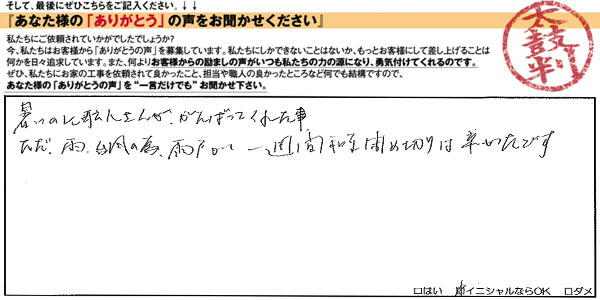 そして、最後にぜひこちらをご記入ください。↓↓
『あなた様の「ありがとう」の声をお聞かせください』
私たちにご依頼されていかがでしたでしょうか?
今、私たちはお客様から「ありがとうの声」を募集しています。私たちにしかできないことはないか、もっとお客様にして差し上げることは
何かを日々追求しています。また、何よりお客様からの励ましの声がいつも私たちの力の源になり、勇気付けてくれるのです。
ぜひ、私たちにお家の工事を依頼されて良かったこと、担当や職人の良かったところなど何でも結構ですので、
あなた様の「ありがとうの声」を“一言だけでも”お聞かせ下さい。
太鼓判
暑いのに職人さんが、がんばってくれた事
ただ、雨、台風の為、雨戸が 一週間程 閉め切りは 辛かったです
□はい □イニシャルならOK □ダメ